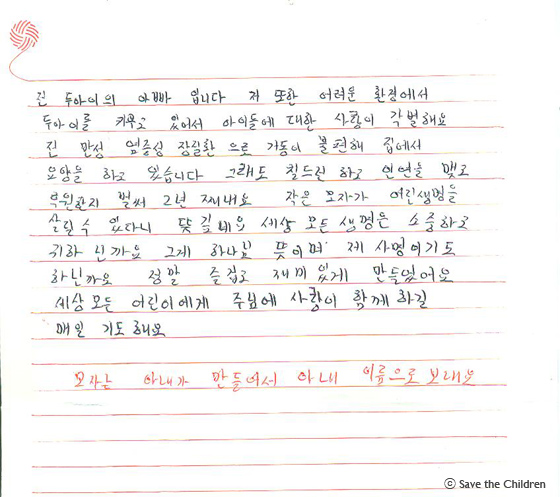 전 두아이의 아빠 입니다 저 또한 어려운 환경에서
두아이를 키우고 있어서 아이들에 대한 사랑이 각별해요
전 만성 염증성 장질환 으로 거동이 불편해 집에서
요양을 하고 있습니다 그래도 칠드런 하고 인연을 맺고
후원한지 벌써 2년 째내요 작은 모자가 어린생명을
살릴수 있다니 뜻깊네요 세상 모든 생명은 소중하고
귀하 닌까요 그게 하나님 뜻이며 제 사명이기도
하닌까요 정말 즐겁고 재미 있게 만들었어요
세상 모든 어린이에게 주님에 사랑이 함께 하길
매일 기도 해요
모자는 아내가 만들어서 아내 이름으로 보내요
ⓒ Save the Children